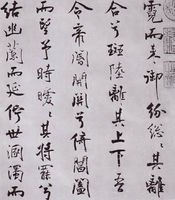 霓而来御紛總〻其離
合兮斑陸離其上下吾
令帝閽開關兮倚閶闔
而望予時曖〻其將罷兮
結幽蘭而延佇世溷濁而